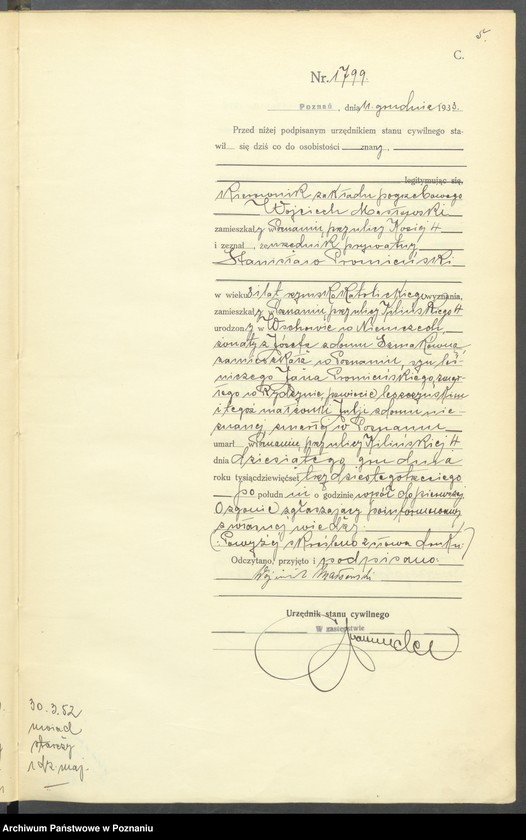 5.
C.
Nr. 1799.
Poznań, dnia 11. grudnia 1933.
Przed niżej podpisanym urzędnikiem stanu cywilnego sta-
wił się dziś co do osobistości znany,
legitymując się,
kierownik zakładu pogrzebowego
Wojciech
zamieszkały w Poznaniu przy ulicy Koziej 4
i zeznał, że urzędnik prywatny
Stanisław Promieński
w wieku lat rzymsko katolickiego wyznania,
zamieszkały w Poznaniu przy ulicy Kilińskiego 4
urodzony w Wschowie w Niemczech,
żonaty z Józefą z domu
zamieszkałą w Poznaniu, syn leś-
niczego Jana Promieńskiego, zmar-
łego w Rydzynie, powiecie leszczyńskim
i tegoż małżonki Julji z domu nie-
znanej zmarłej w Poznaniu
umarł w Poznaniu przy ulicy Kilińskiej 4
dnia dziesiątego grudnia
roku tysiącdziewięćset trzydziestego trzeciego
po połudn iu o godzinie wpół do pierwszej.
O zgonie zgłaszający poinformowany
z własnej wiedzy.
(Powyżej skreślono słowa druku.)
Odczytano, przyjęto i podpisano.
Urzędnik stanu cywilnego
W zastępstwie
30.3.52
Archiwum Państwowe w Poznaniu